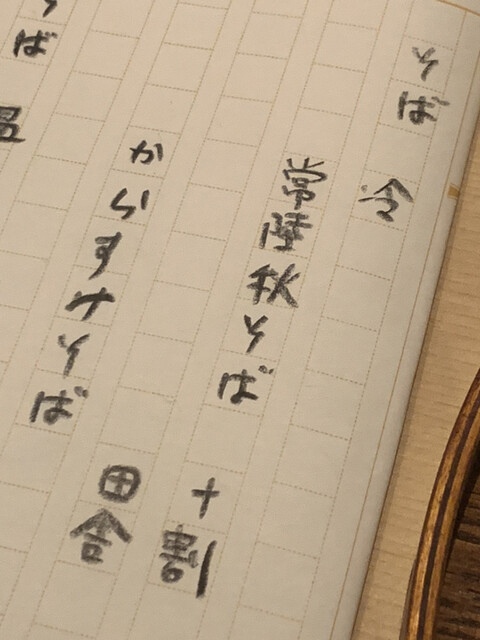 そば 冷
常陸秋そば 十割
田舎
からすみそば
そば 温